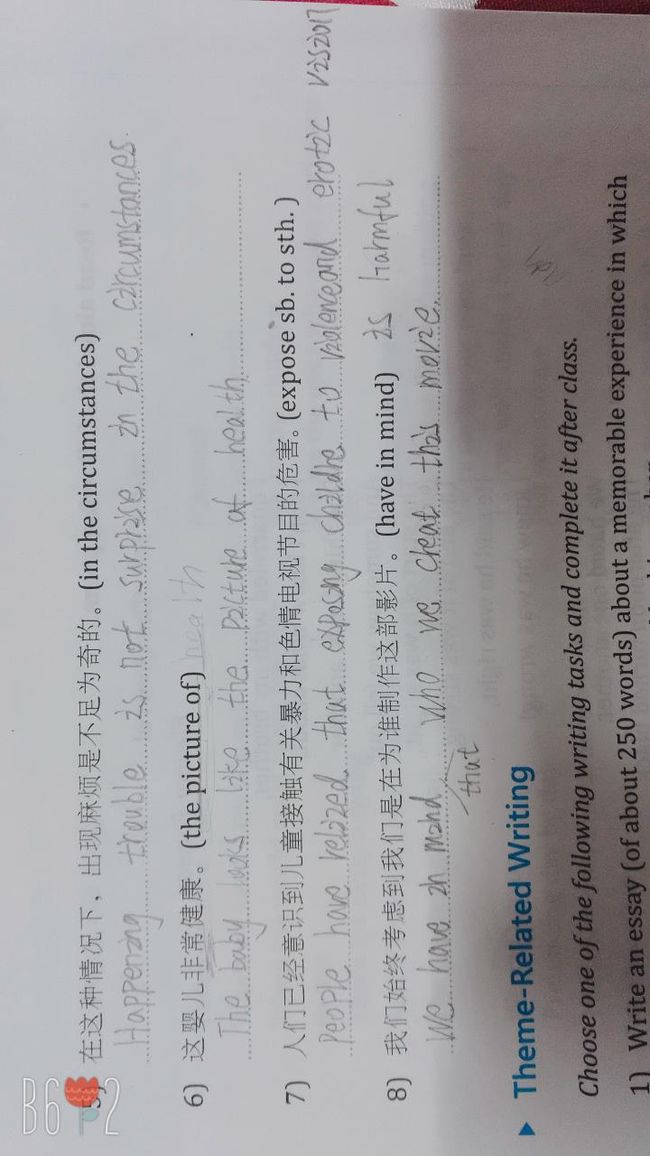 在这种情况下，出现麻烦是不足为奇的。(in the circumstances)
Happening trouble is not surprise in the circumstances.
6) 这婴儿非常健康。(the picture of) health
The baby looks like the paicture of health.
7) 人们已经意识到儿童接触有关暴力和色情电视节目的危害。(expose sb. to sth.)
People have relaized that exposing childre to violence and erotic vision
is harmful
8) 我们始终考虑到我们是在为谁制作这部影片。(have in mind)
We have in mind who we cleat this movie.
that
▸ Theme-Related Writing
Choose one of the following writing tasks and complete it after class.
1) Write an essay (of about 250 words) about a memorable experience in which
B612